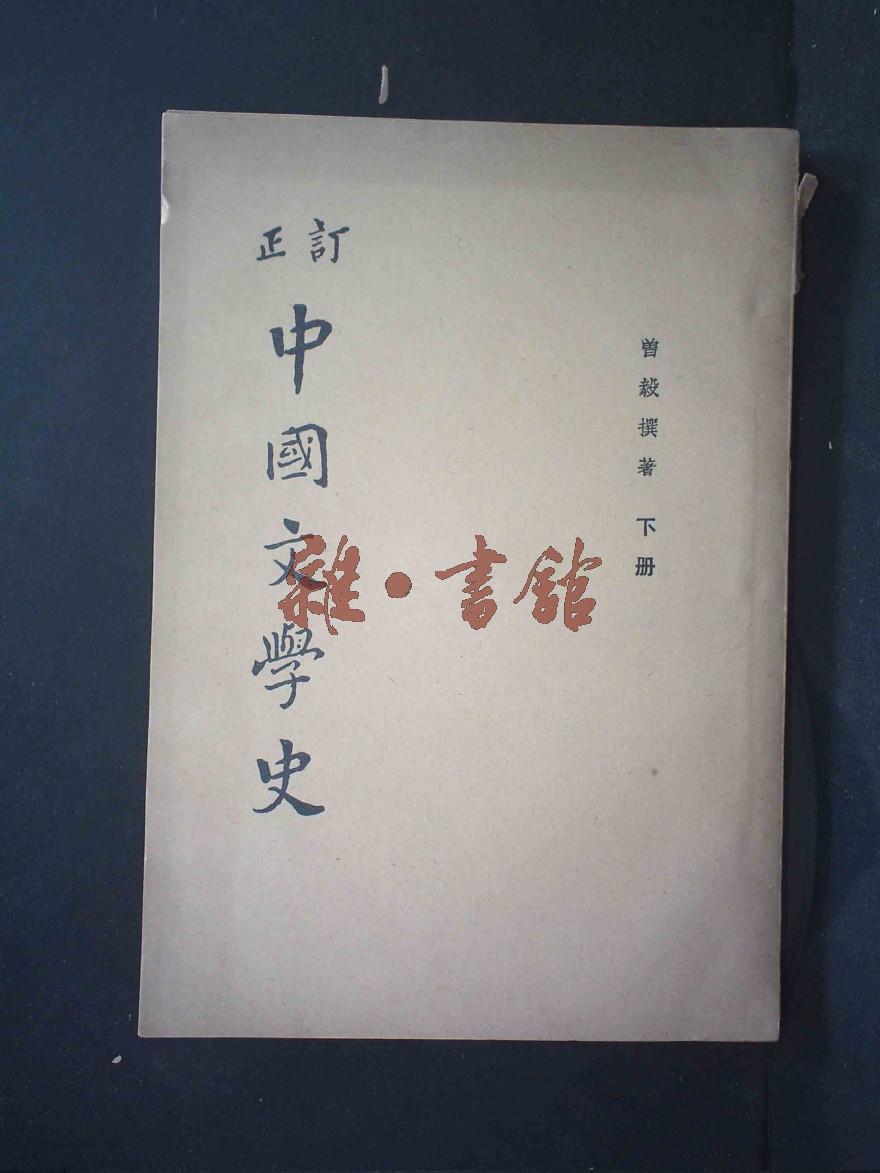 訂正
中國文學史
曾毅撰著 下册
雜·書館